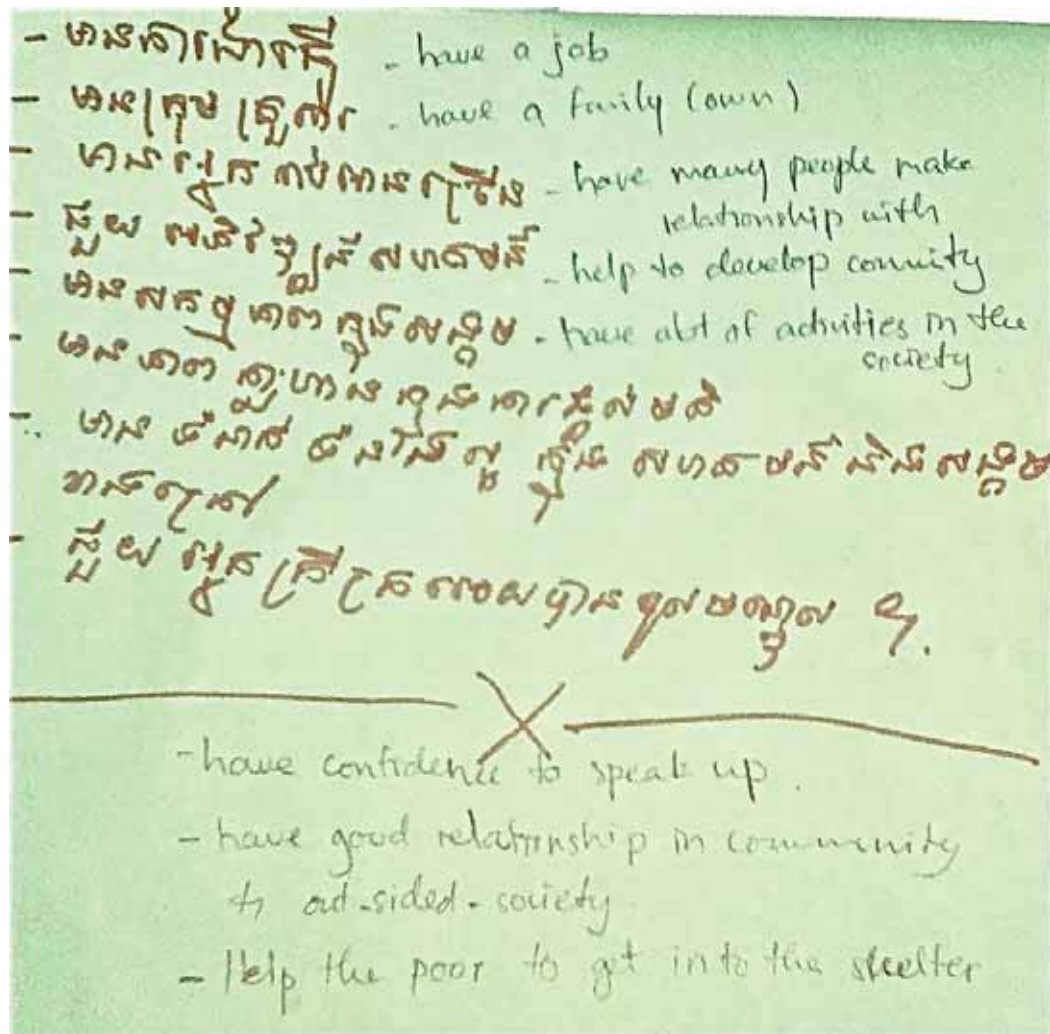 - មានការងារធ្វើ - have a job
- មានក្រុមគ្រួសារ - have a family (own)
- មានអ្នករាប់អានច្រើន - have many people make
relationship with
- ជួយអភិវឌ្ឍន៍សហគមន៍ - help to develop comuity
- មានសកម្មភាពក្នុងសង្គម - have alot of activities in the
society
- មានភាពក្លាហានក្នុងការផ្ដល់មតិ
- មានទំនាក់ទំនងល្អ ក្នុង សហគមន៍ និងសង្គម
ខាងក្រៅ
- ជួយអ្នកក្រីក្រអោយបានចូលមណ្ឌល ។
- have confidence to speak up.
- have good relationship in community
& out-sided-society
- Help the poor to get into the shelter